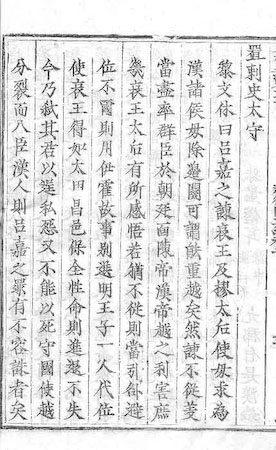 置刺史太守
黎文休曰呂嘉之諫哀王及樛太后使毋求為
漢諸侯毋除邊關可謂能重越矣然諫不從義
當盡率群臣於朝廷面陳帝漢帝越之利害庶
幾哀王太后有所感悟若猶不從則當引咎避
位不爾則用伊霍故事別選明王子一人代位
使哀王得如太甲昌邑保全性命則進退不失
今乃弒其君以逞私怨又不能以死守國使越
分裂而入臣漢人則呂嘉之罪有不容誅者矣